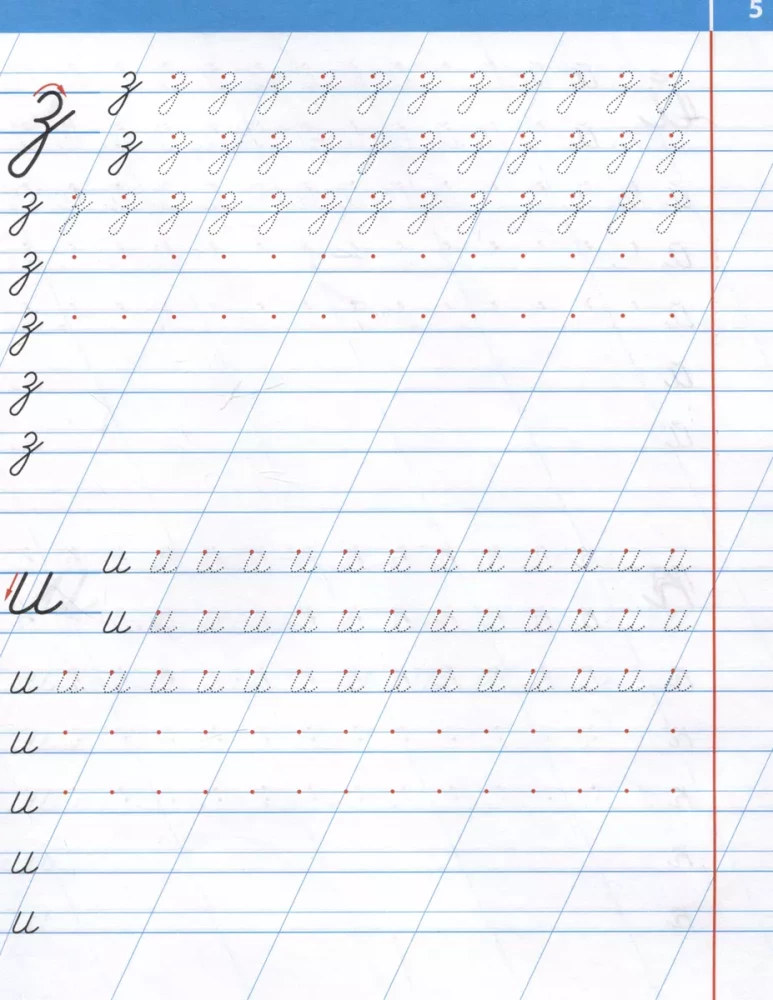 5
з з з з з з з з з з з з з
з з з з з з з з з з з з
з з з з з з з з з з з з з з
з
з
з
з
и и и и и и и и и и и и и и
и и и и и и и и и и и и и
и и и и и и и и и и и и и и и
и
и
и
и